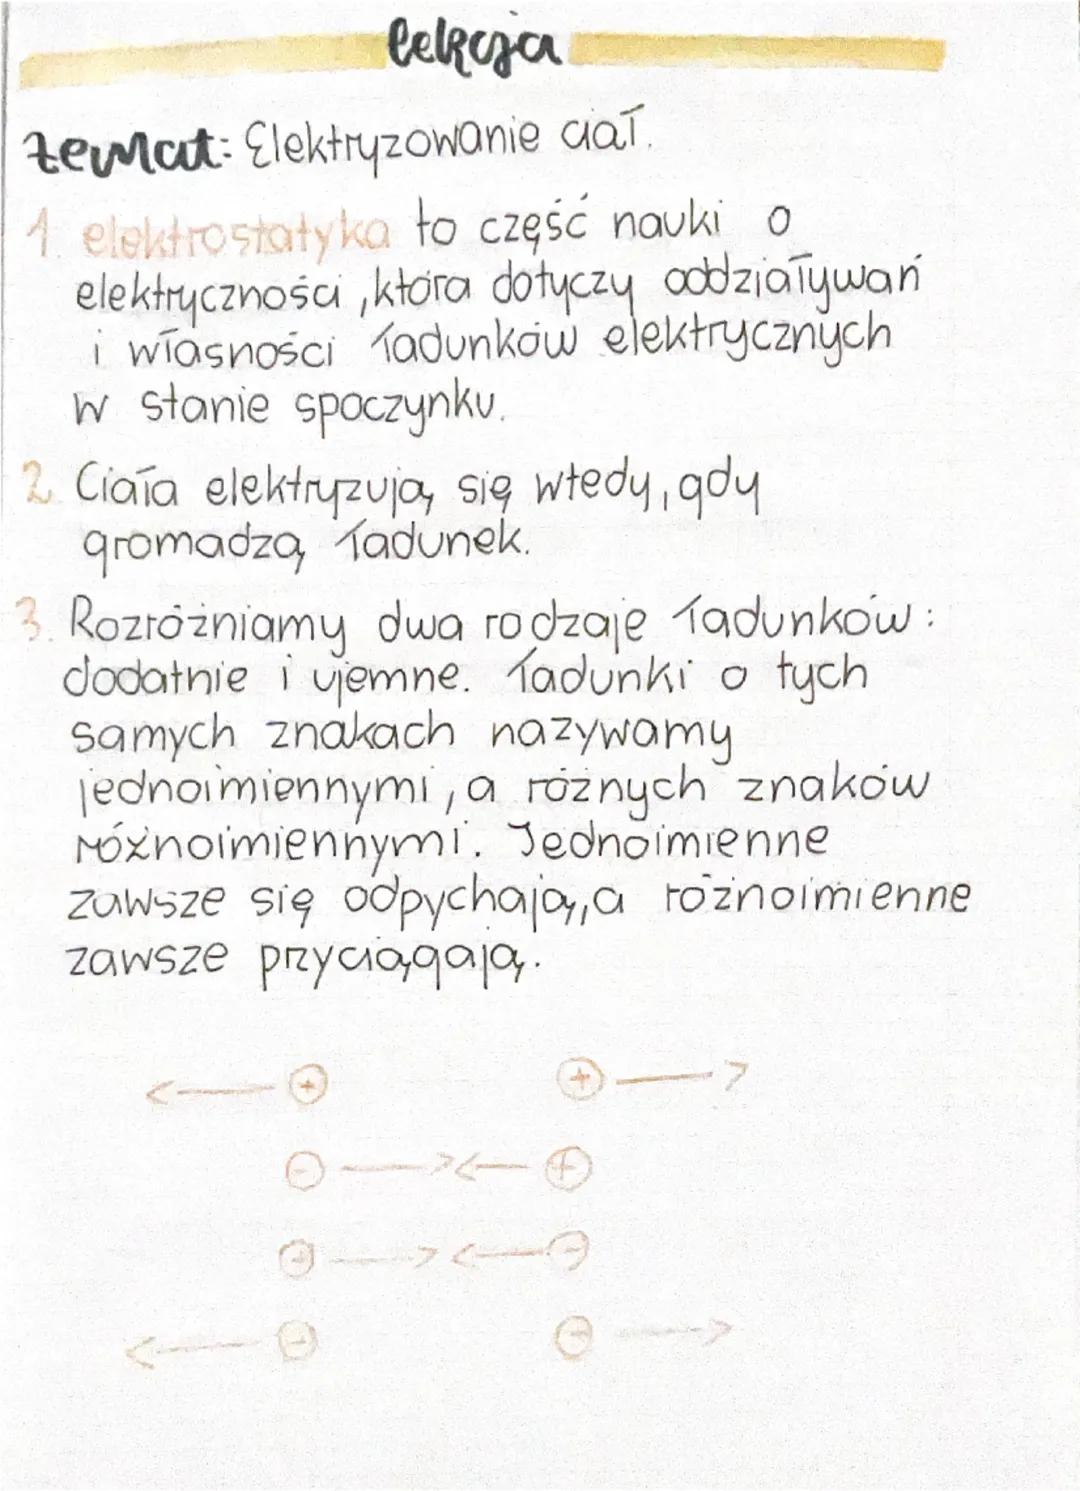 lekcja
temat: Elektryzowanie ciał.
1. elektrostatyka to część nauki o
elektryczności, która dotyczy oddziaływań
i własności ładunków elektrycznych
w stanie spoczynku.
2. Ciała elektryzują się wtedy, gdy
gromadzą ładunek.
3. Rozróżniamy dwa rodzaje ładunków:
dodatnie i ujemne. Ładunki o tych
samych znakach nazywamy
jednoimiennymi, a różnych znaków
różnoimiennymi. Jednoimienne
zawsze się odpychają, a różnoimienne
zawsze przyciągają.
+ +
- +
+ -
- -